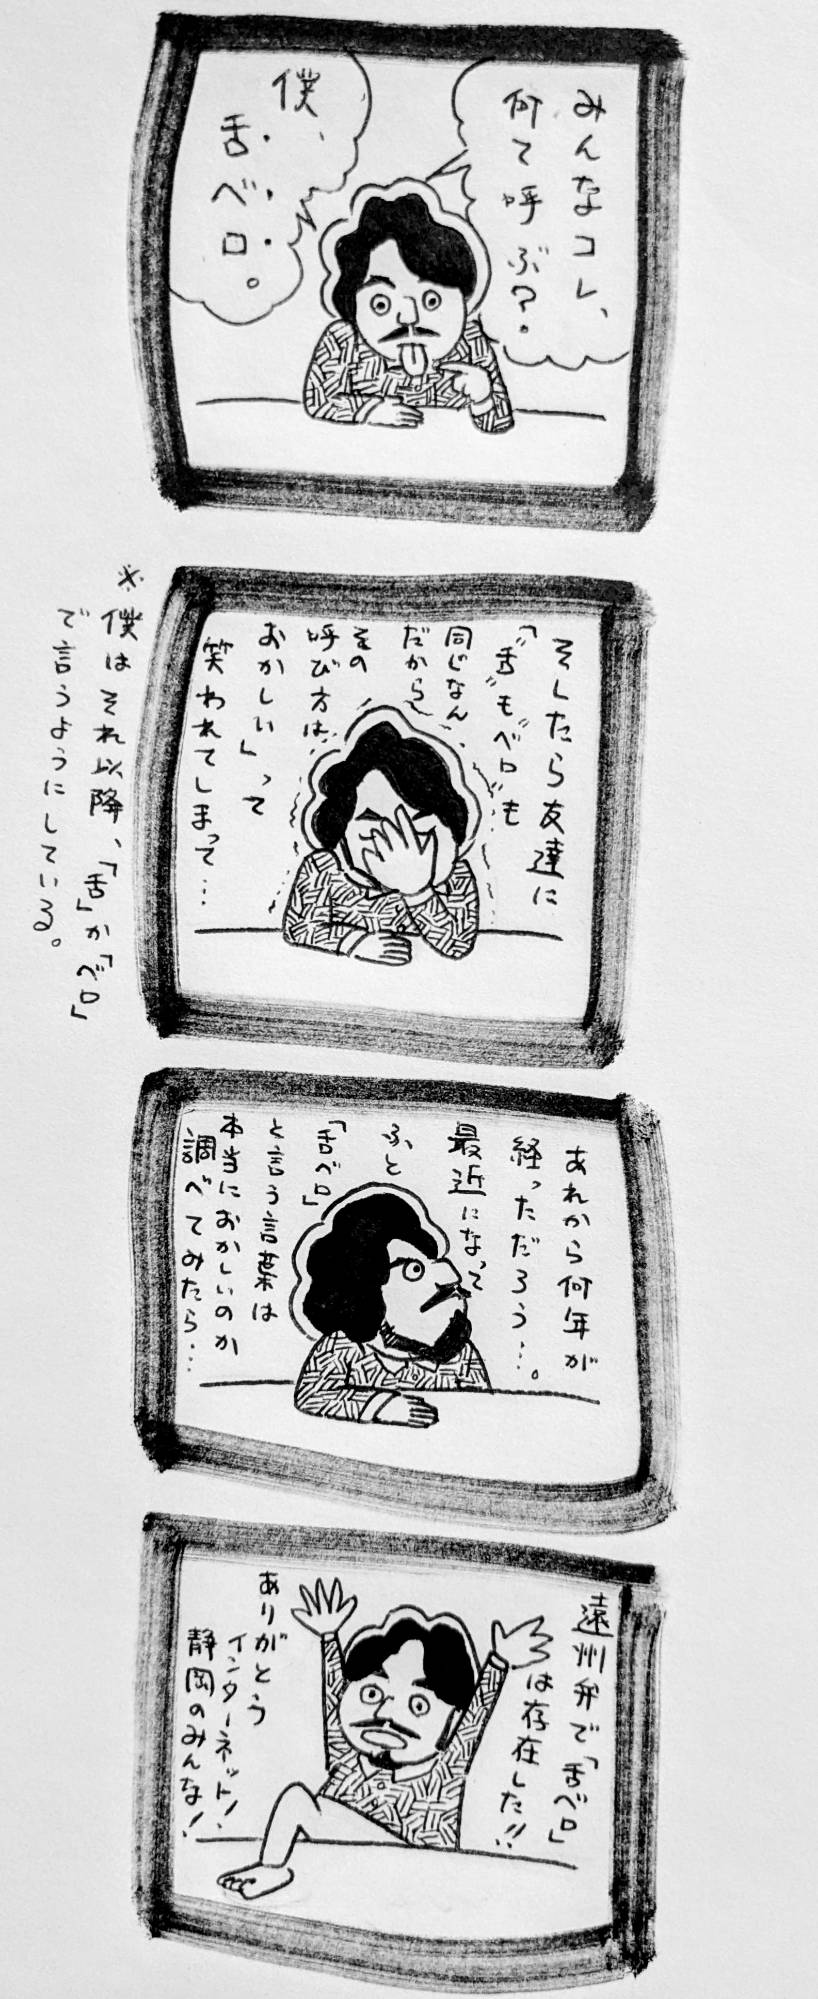 みんなコレ、
何て呼ぶ?
僕、
舌ベロ。
そしたら友達に
「〝舌〟も〝ベロ〟も
同じなん
だから
その
呼び方は
おかしい」って
笑われてしまって…
※僕はそれ以降、「舌」か「ベロ」
で言うようにしている。
あれから何年が
経っただろう…。
最近になって
ふと
「舌ベロ」
と言う言葉は
本当におかしいのか
調べてみたら…
遠州弁で「舌ベロ」
は存在した!!
ありがとう
インターネット!
静岡のみんな!